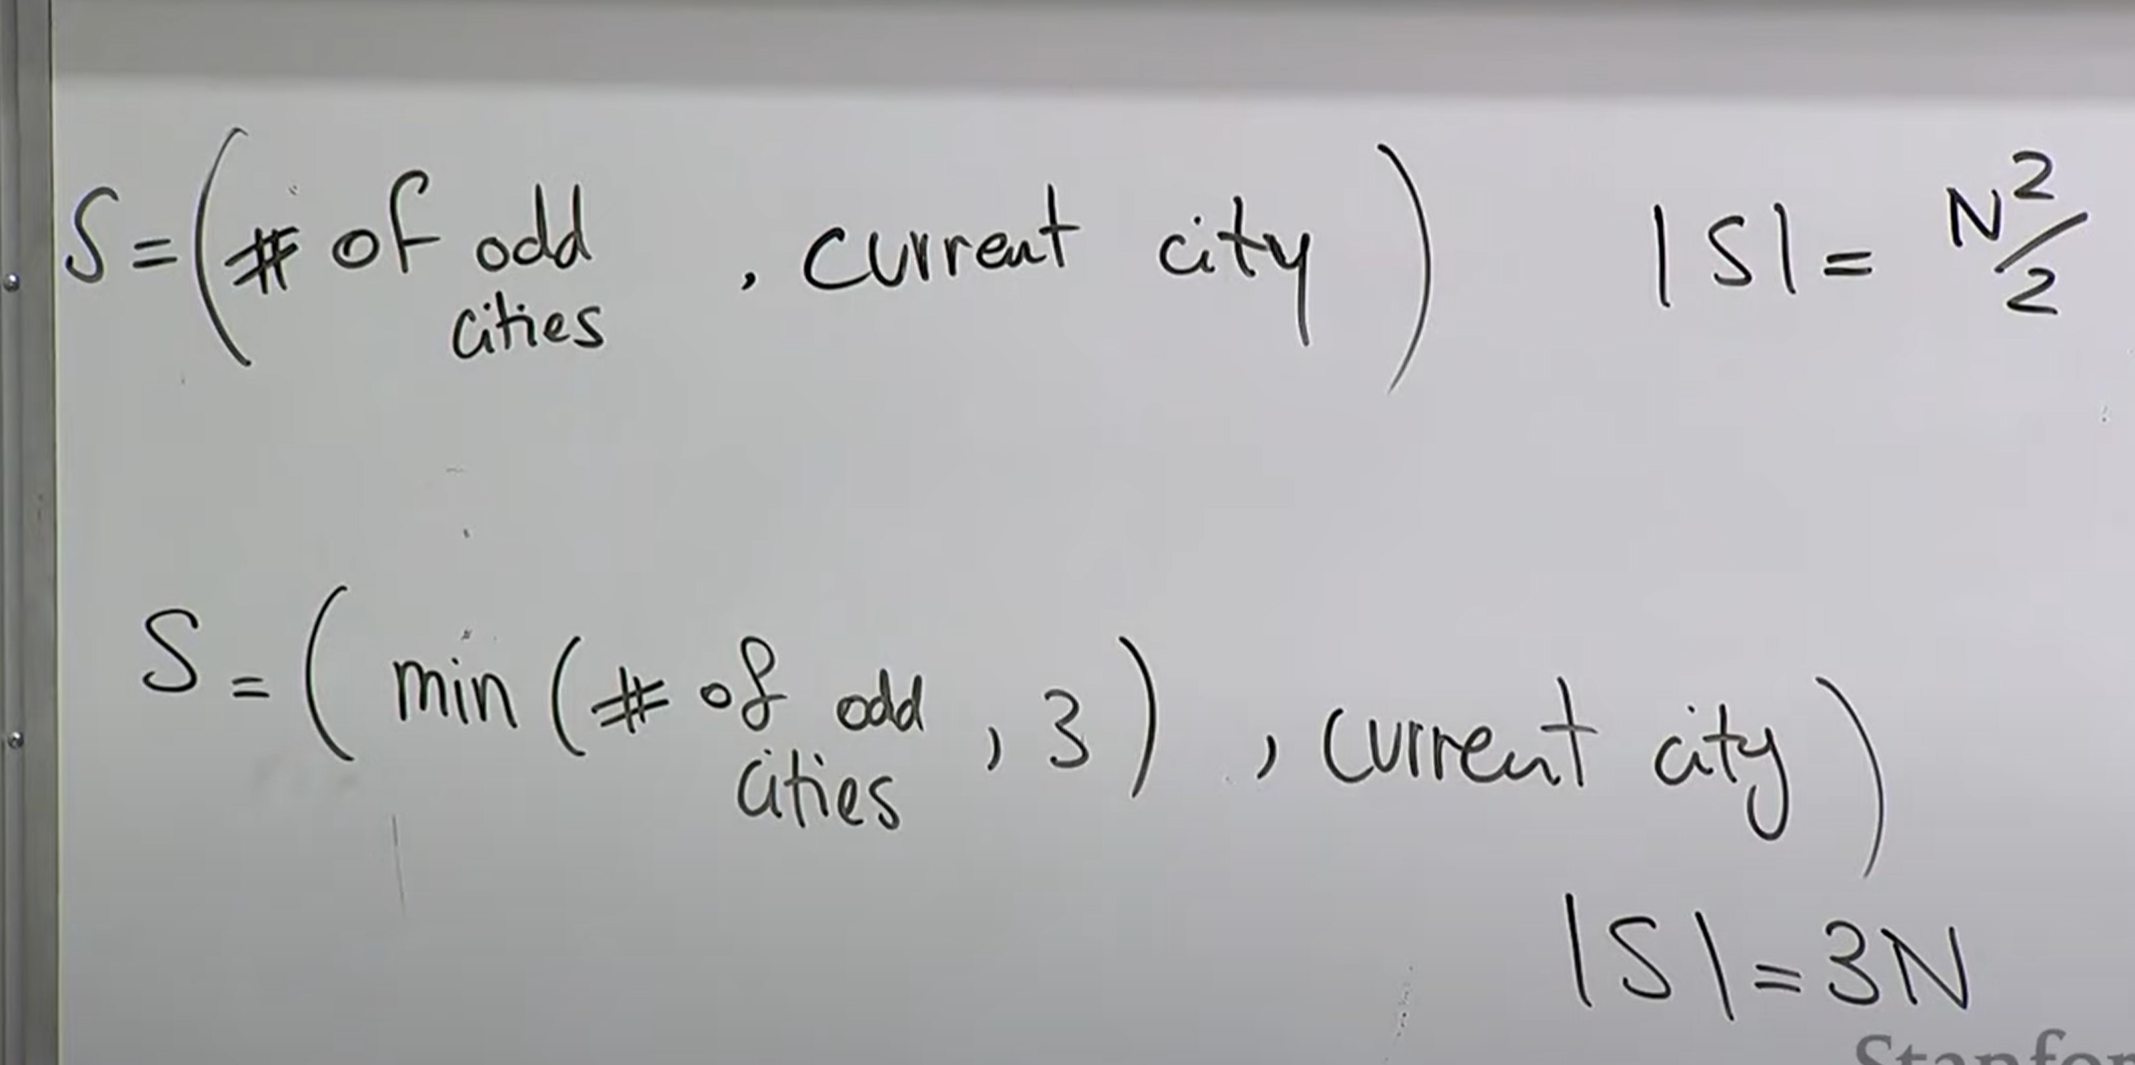 S = (# of odd cities, current city) |S| = N²/2
S = (min(# of odd cities, 3), current city)
|S| = 3N